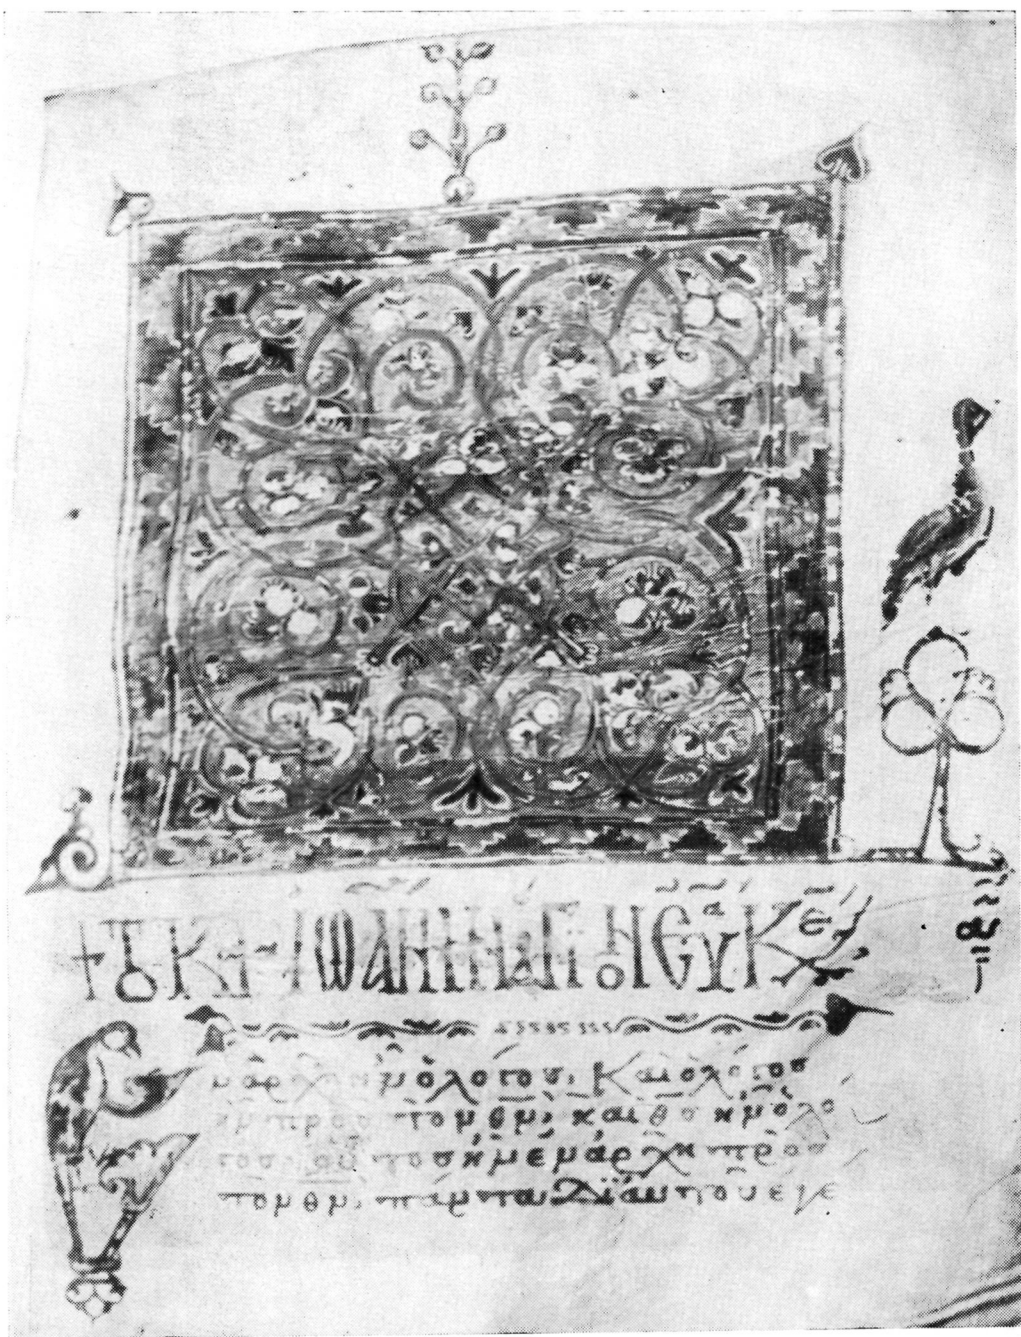 + ΤΟ ΚΤ ΙΩΑΝΝΗΝ ΑΓΙΟΝ ΕΥᾰ
Ἐν ἀρχῆ ἦν ὁ λόγοσ· Καὶ ὁ λόγοσ
ἦν πρὸσ τὸν θν· καὶ θσ ἦν ὁ λό
γοσ· οὗτοσ ἦν ἐν ἀρχῆ πρὸσ
τὸν θν· πάντα δι αὐτοῦ ἐγέ